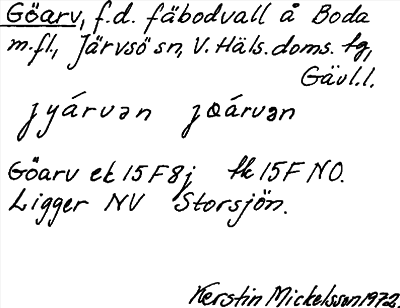 Göarv, f.d. fäbodvall å Boda
m.fl., Järvsö sn, V. Häls. doms. tg,
Gävl.l.
jyárvən jøárvən
Göarv ek 15F8j tk 15F NO.
Ligger NV Storsjön.
Kerstin Mickelsson 1972.